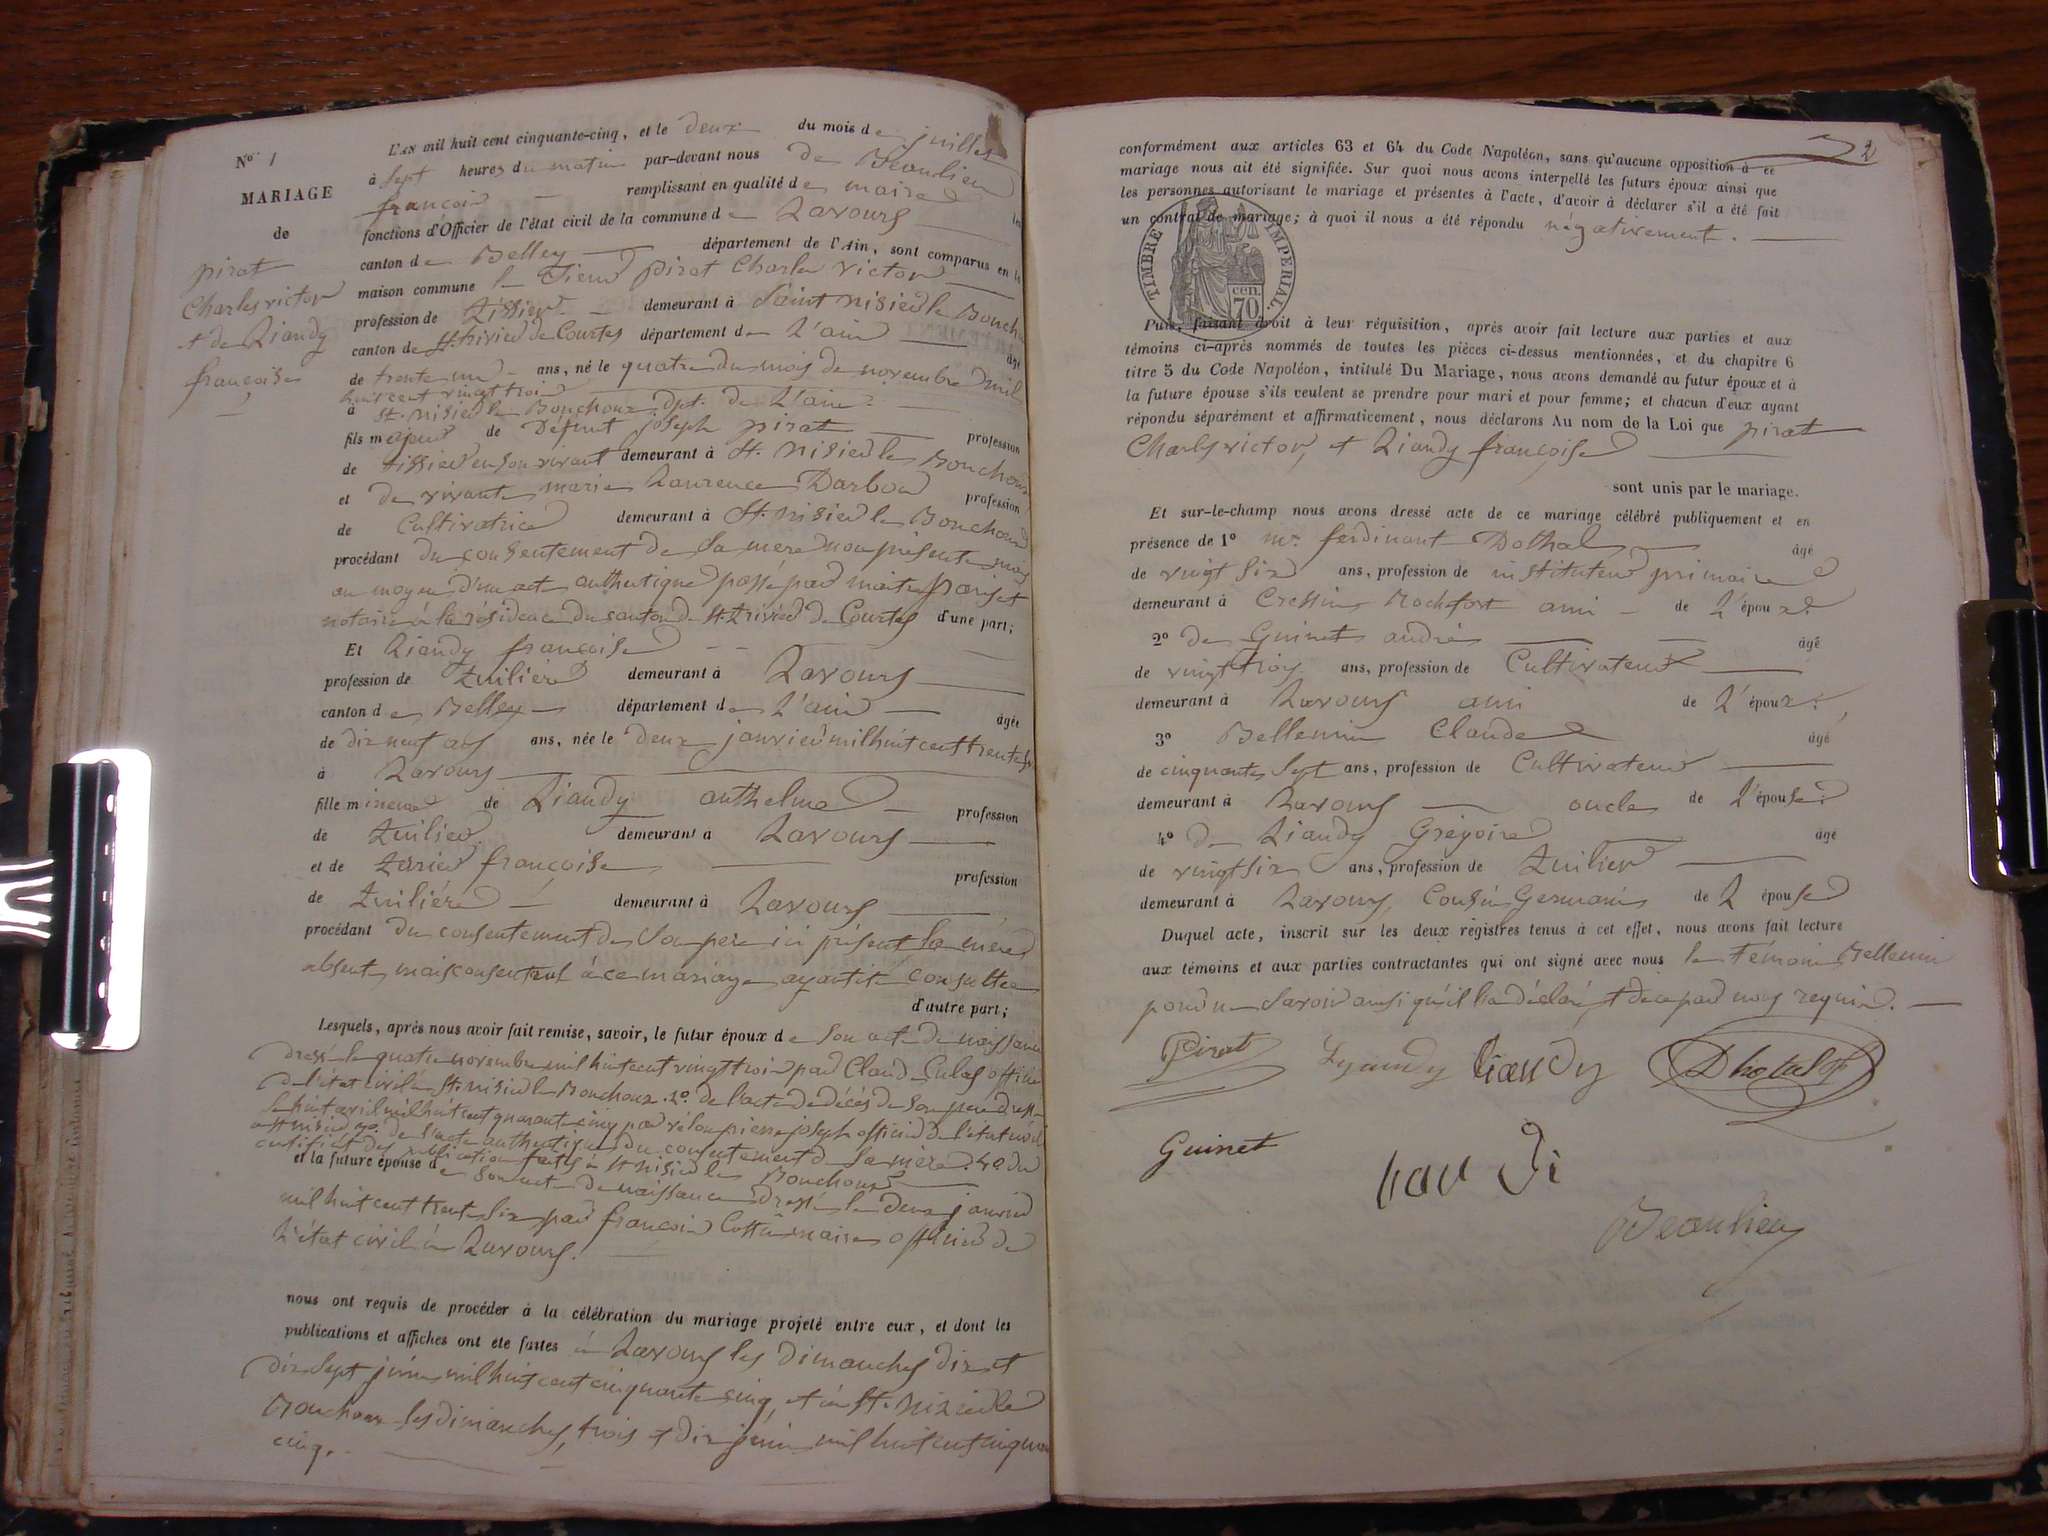 N° 1
MARIAGE
de
pirat
Charles victor
et de Liandy
françoise
L'AN mil huit cent cinquante-cinq, et le deux du mois de juillet
à sept heures du matin par-devant nous de Beaulieu
françois remplissant en qualité de maire les
fonctions d'Officier de l'état civil de la commune de Lavours
canton de Belley département de l'Ain, sont comparus en la
maison commune le Sieur pirat Charles victor
profession de tissier demeurant à Saint nisier le Bouchoux
canton de St. trivier de Courtes département de L'ain âgé
de trente un ans, né le quatre du mois de novembre mil
huit cent vingt trois
à St. nisier le Bouchoux dpt. de L'ain
fils majeur de Défunt joseph pirat profession
de tissier en son vivant demeurant à St. nisier le Bouchoux
et de vivante marie Laurence Darbon profession
de Cultivatrice demeurant à St. nisier le Bouchoux
procédant du consentement de sa mere non présente mais
au moyen d'un acte authentique passé par maitre
notaire à la résidence du canton de St. trivier de Courtes d'une part;
Et Liandy françoise
profession de tuilière demeurant à Lavours
canton de Belley département de L'ain âgée
de dix neuf ans ans, née le deux janvier mil huit cent trente six
à Lavours
fille mineure de Liandy anthelme profession
de tuilier demeurant à Lavours
et de françoise profession
de tuilière demeurant à Lavours
procédant du consentement de son pere ici présent la mère
absente mais consentant à ce mariage ayant été consultée
d'autre part;
Lesquels, après nous avoir fait remise, savoir, le futur époux de son acte de naissance
dressé le quatre novembre mil huit cent vingt trois par Claude officier
de l'état civil à St. nisier le Bouchoux. 2°. de l'acte de décès de son pere dressé
le huit avril mil huit cent quarante cinq par pierre joseph officier de l'état civil
à St nisier 3°. de l'acte authentique du consentement de sa mere. 4° du
certificat des publications faites à St nisier le Bouchoux
et la future épouse de son acte de naissance dressé le deux janvier
mil huit cent trente six par françois maire officier de
L'état civil à Lavours.
nous ont requis de procéder à la célébration du mariage projeté entre eux, et dont les
publications et affiches ont été faites à Lavours les dimanches dix et
dix sept juin mil huit cent cinquante cinq, et à St. nizier le
Bouchoux les dimanches, trois et dix juin mil huit cent cinquante
cinq.
2
conformément aux articles 63 et 64 du Code Napoléon, sans qu'aucune opposition à ce
mariage nous ait été signifiée. Sur quoi nous avons interpellé les futurs époux ainsi que
les personnes autorisant le mariage et présentes à l'acte, d'avoir à déclarer s'il a été fait
un contrat de mariage; à quoi il nous a été répondu négativement.
TIMBRE IMPERIAL
cen.
70
Puis, faisant droit à leur réquisition, après avoir fait lecture aux parties et aux
témoins ci-après nommés de toutes les pièces ci-dessus mentionnées, et du chapitre 6
titre 5 du Code Napoléon, intitulé Du Mariage, nous avons demandé au futur époux et à
la future épouse s'ils veulent se prendre pour mari et pour femme; et chacun d'eux ayant
répondu séparément et affirmativement, nous déclarons Au nom de la Loi que pirat
Charles victor, et Liandy françoise
sont unis par le mariage.
Et sur-le-champ nous avons dressé acte de ce mariage célébré publiquement et en
présence de 1° mr. ferdinant Dothal âgé
de vingt six ans, profession de instituteur primaire
demeurant à Cressin Rochefort ami de L'époux.
2° de Guinet andré âgé
de vingt trois ans, profession de Cultivateur
demeurant à Lavours ami de L'époux.
3° Bellemin Claude âgé
de cinquante sept ans, profession de Cultivateur
demeurant à Lavours oncle de L'épouse.
4° de Liandy Grégoire âgé
de vingt six ans, profession de tuilier
demeurant à Lavours Cousin Germain de L'épouse
Duquel acte, inscrit sur les deux registres tenus à cet effet, nous avons fait lecture
aux témoins et aux parties contractantes qui ont signé avec nous le témoin Bellemin
pour ne savoir ainsi qu'il l'a déclaré et de ce par nous requis.
Pirat Lyandy liandy Dhotal f
Guinet
liandi
Beaulieu